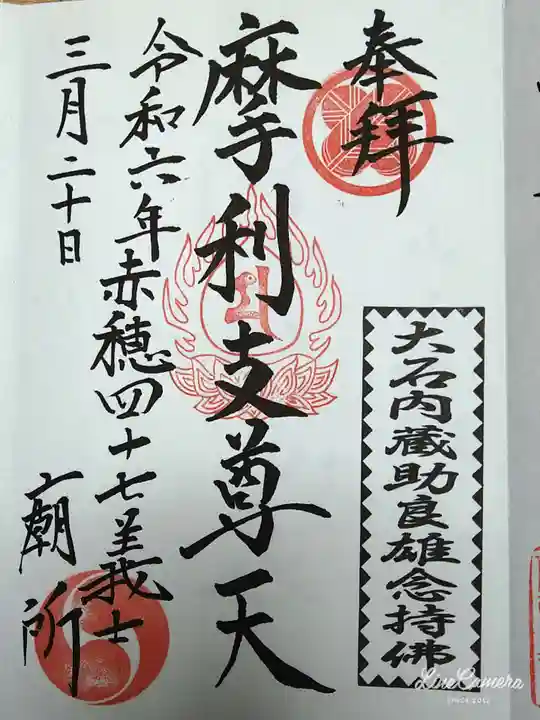 奉拝
大石内蔵助良雄念持佛
摩利支尊天
令和六年赤穂四十七義士
廟所
三月二十日
LineCamera
SINCE 2012